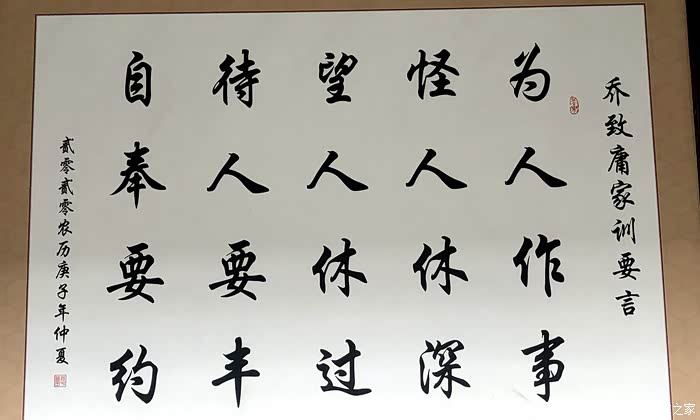 乔致庸家训要言
为人作事
怪人休深
望人休过
待人要丰
自奉要约
贰零贰零农历庚子年仲夏
之家